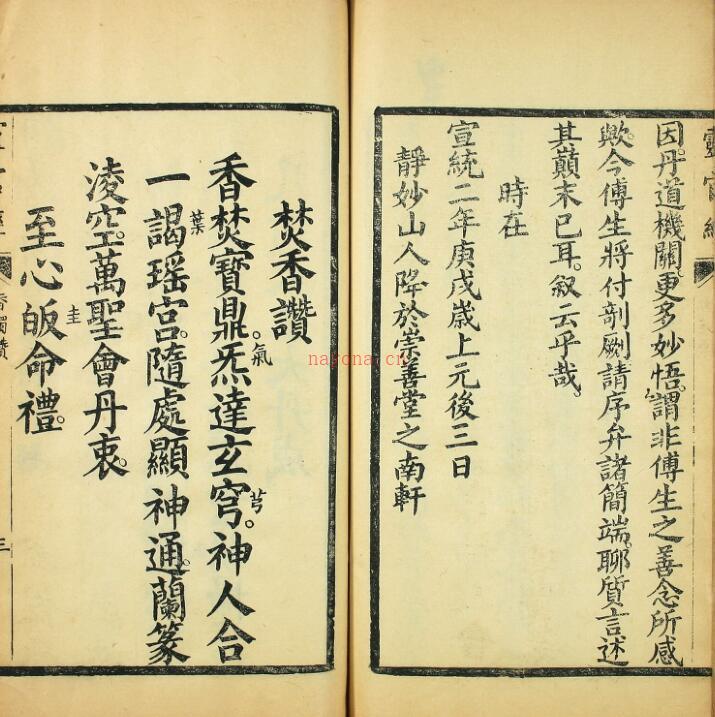 靈官經
因丹道機關。更多妙悟。謂非傅生之善念所感
歟。今傅生將付剞劂。請序弁諸簡端。聊質言述
其巔末已耳。敘云乎哉。
時在
宣統二年庚戌歲上元後三日
靜妙山人降於崇善堂之南軒
焚香讚
香焚寶鼎。炁達玄穹。神人合
一謁瑤宮。隨處顯神通。蘭篆
淩空。萬聖會丹衷。
至心皈命禮。
讚
氣
芎
葉
圭
三
nayona.cn